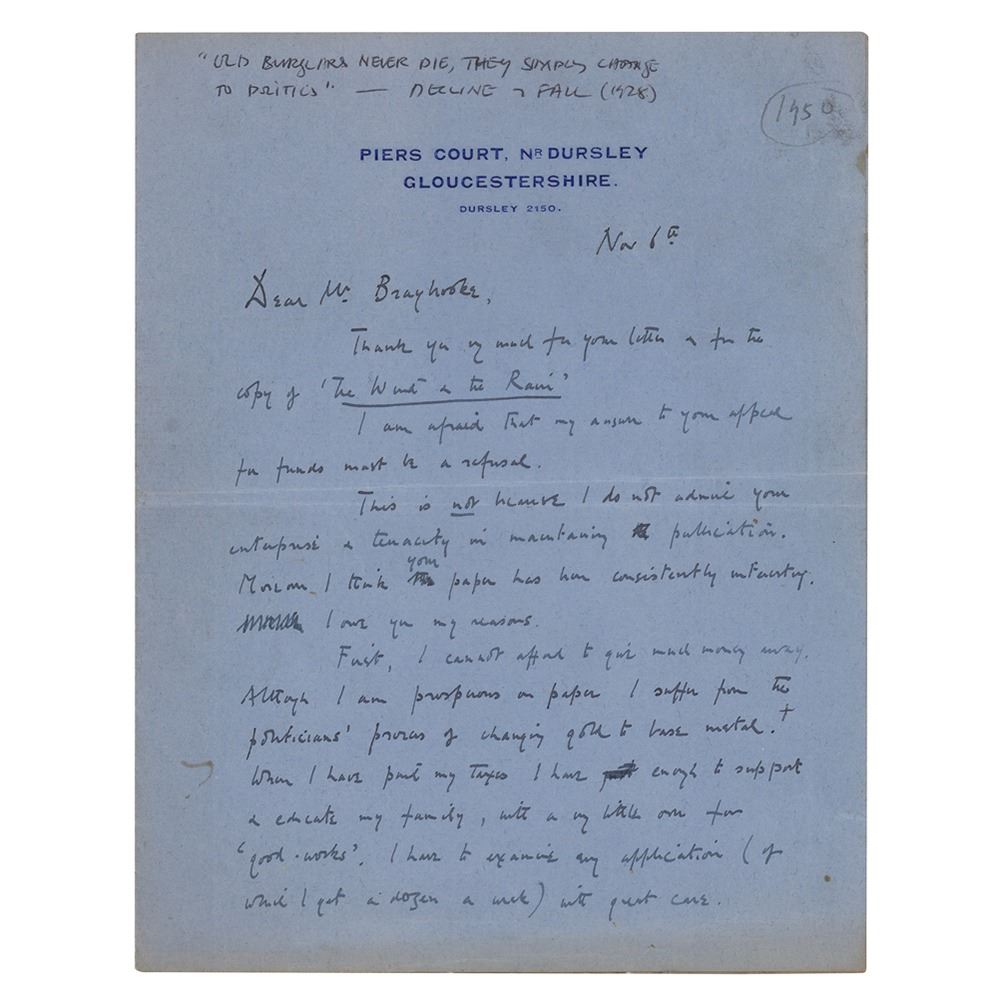 "OLD BURGLARS NEVER DIE, THEY SIMPLY CHANGE
TO POLITICS" — DECLINE & FALL (1928)
1950
PIERS COURT, NR DURSLEY
GLOUCESTERSHIRE.
DURSLEY 2150.
Nov 6th
Dear Mr Braybrooke,
Thank you vy much for your letter & for the
copy of 'The Wind & the Rain'
I am afraid that my answer to your appeal
for funds must be a refusal.
This is not because I do not admire your
enterprise & tenacity in maintaining publication.
Moreover I think your paper has been consistently interesting.
I owe you my reasons.
First, I cannot afford to give much money away.
Although I am prosperous on paper I suffer from the
politicians' process of changing gold to base metal. +
When I have paid my taxes I have enough to support
& educate my family, with a vy little over for
"good-works". I have to examine any application (of
which I get a dozen a week) with great care.